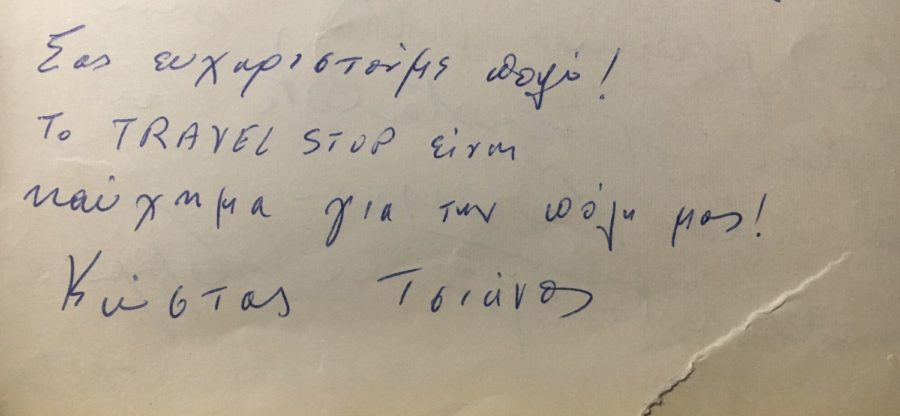 Σας ευχαριστούμε πολύ!
Το TRAVEL STOP είναι
καύχημα για την πόλη μας!
Κώστας Τσιάνος